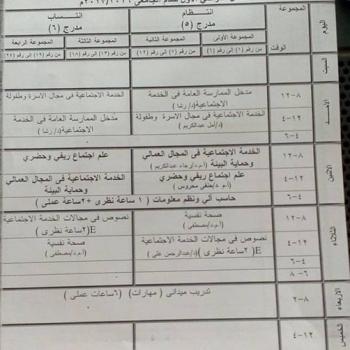 انتظام
مدرج (٥)
انتساب
مدرج (٦)
المجموعة
اليوم
الوقت
المجموعة الأولى
المجموعة الثانية
المجموعة الثالثة
المجموعة الرابعة
السبت
الأحد
٨-١٢
مدخل الممارسة العامة فى الخدمة الاجتماعية (د/رشا)
الخدمة الاجتماعية فى مجال الاسرة وطفولة
١٢-٤
الخدمة الاجتماعية فى مجال الاسرة وطفولة (د/أمل عبدالكريم)
مدخل الممارسة العامة فى الخدمة الاجتماعية (د/رشا)
٤-٦
الاثنين
٨-١٢
الخدمة الاجتماعية فى المجال العمالى وحماية البيئة
علم اجتماع ريفي وحضري
١٢-٤
علم اجتماع ريفي وحضري
الخدمة الاجتماعية فى المجال العمالى وحماية البيئة
٤-٦
حاسب الي ونظم معلومات (١ ساعة نظرى + ٢ساعة عملى)
الثلاثاء
٨-١٢
صحة نفسية
(أ.م.د/مصطفى)
نصوص فى مجالات الخدمة الاجتماعية E (٢ساعة نظرى)
١٢-٤
نصوص فى مجالات الخدمة الاجتماعية E (٢ساعة نظرى) (د/عبدالرحمن على)
صحة نفسية
(أ.م.د/مصطفى)
٤-٦
٦-٨
الاربعاء
٨-٢
تدريب ميدانى (مهارات) (٦ساعات عملى)
الخميس
١٢-٤